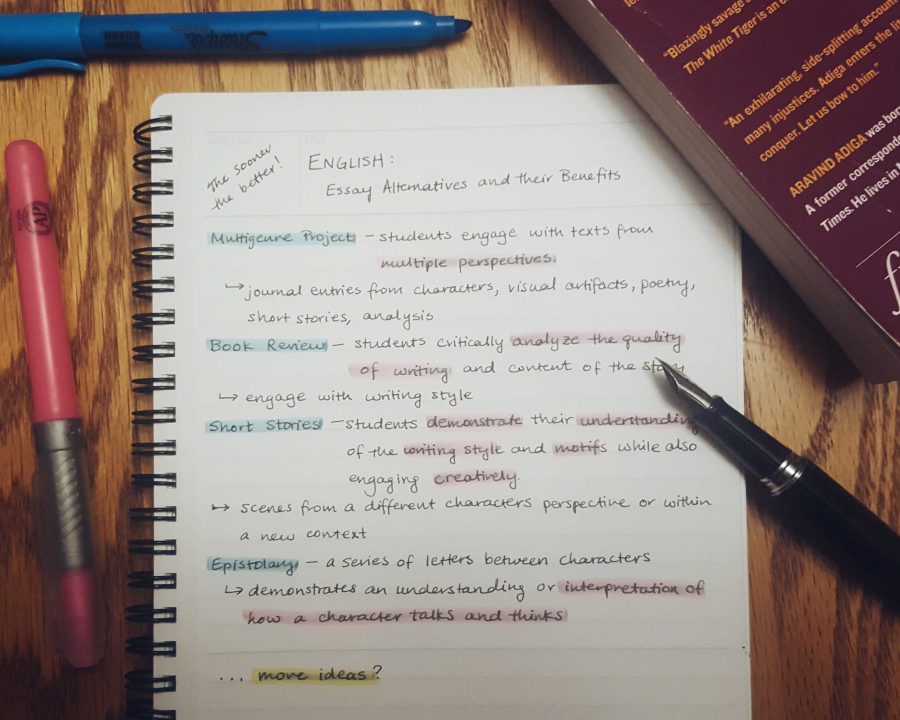 The sooner
the better!
ENGLISH:
Essay Alternatives and their Benefits
Multigenre Project - students engage with texts from
multiple perspectives.
↳ journal entries from characters, visual artifacts, poetry,
short stories, analysis
Book Review - students critically analyze the quality
of writing and content of the story
↳ engage with writing style
Short Stories - students demonstrate their understanding
of the writing style and motifs while also
engaging creatively.
↳ scenes from a different characters perspective or within
a new context
Epistolary - a series of letters between characters
↳ demonstrates an understanding or interpretation of
how a character talks and thinks
... more ideas?
Sharpie
AP
"Blazingly savage
The White Tiger is an
"An exhilarating, side-splitting accoun
many injustices. Adiga enters the
conquer. Let us bow to him."
ARAVIND ADIGA was bor
A former correspond
Times. He lives in
f